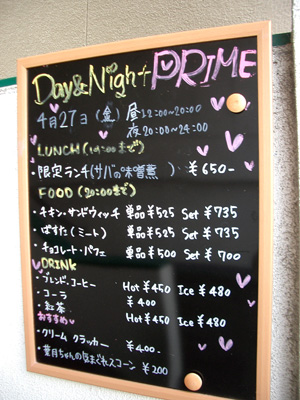 Day&Night PRIME
4月27日(金) 昼12:00~20:00
夜20:00~24:00
LUNCH(14:00まで)
限定ランチ(サバの味噌煮) ¥650-
FOOD (20:00まで)
・チキン・サンドウィッチ 単品¥525 Set ¥735
・ぱすた(ミート) 単品¥525 Set ¥735
・チョコレート・パフェ 単品¥500 Set ¥700
DRINK
・ブレンド・コーヒー Hot ¥450 Ice ¥480
・コーラ ¥400
・紅茶 Hot ¥450 Ice ¥480
おすすめ
・クリーム クラッカー ¥400-
・葉月ちゃんの気まぐれスコーン ¥200